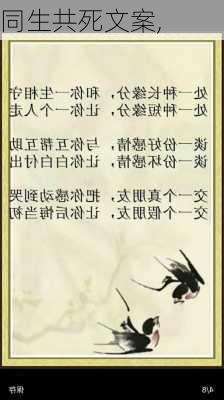 同生共死文案,
处一种长缘分，和你一生相守
处一种短缘分，让你一个人走
谈一份好感情，与你互帮互助
谈一份坏感情，让你白白付出
交一个真朋友，把你感动到哭
交一个假朋友，让你后悔当初
4/8
保存